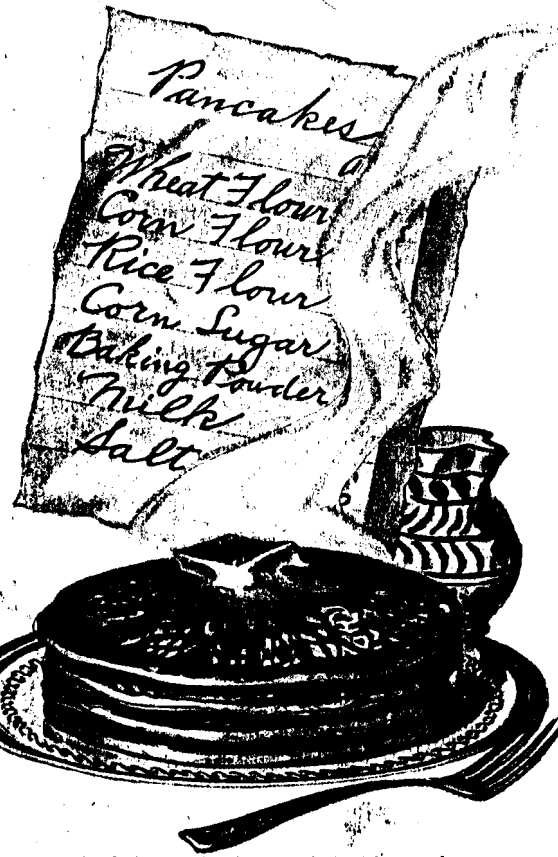 Pancakes
Wheat Flour
Corn Flour
Rice Flour
Corn Sugar
Baking Powder
Milk
Salt